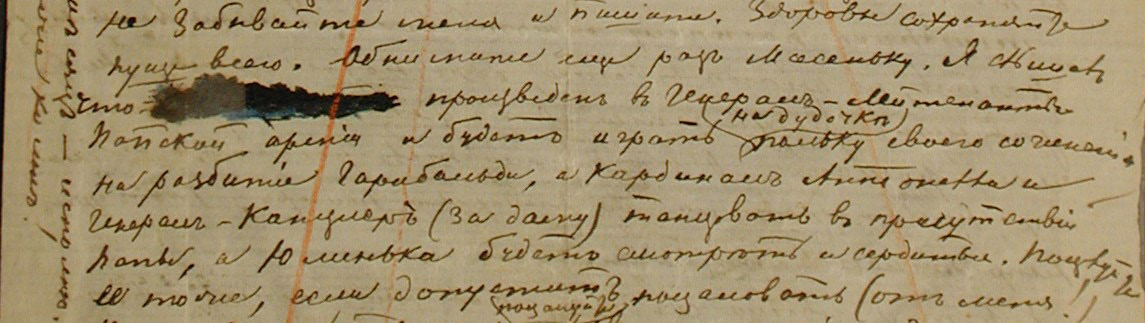 не забывайте меня и пишите. Здоровье сохраняйте
пуще всего. Обнимите еще разъ Масеньку. Я слышалъ
что произведенъ въ Генералъ-Лейтенанты
Папской арміи и будетъ играть (на дудочкѣ) польку своего сочиненія
на разбитіе Гарибальди, а Кардиналъ Антонелли и
Генералъ-Канцлеръ (за даму) танцовать въ присутствіи
Папы, а Юлинька будетъ смотрѣть и сердиться. Поцѣлуйте
ее тоже, если допуститъ поцаловать (отъ меня